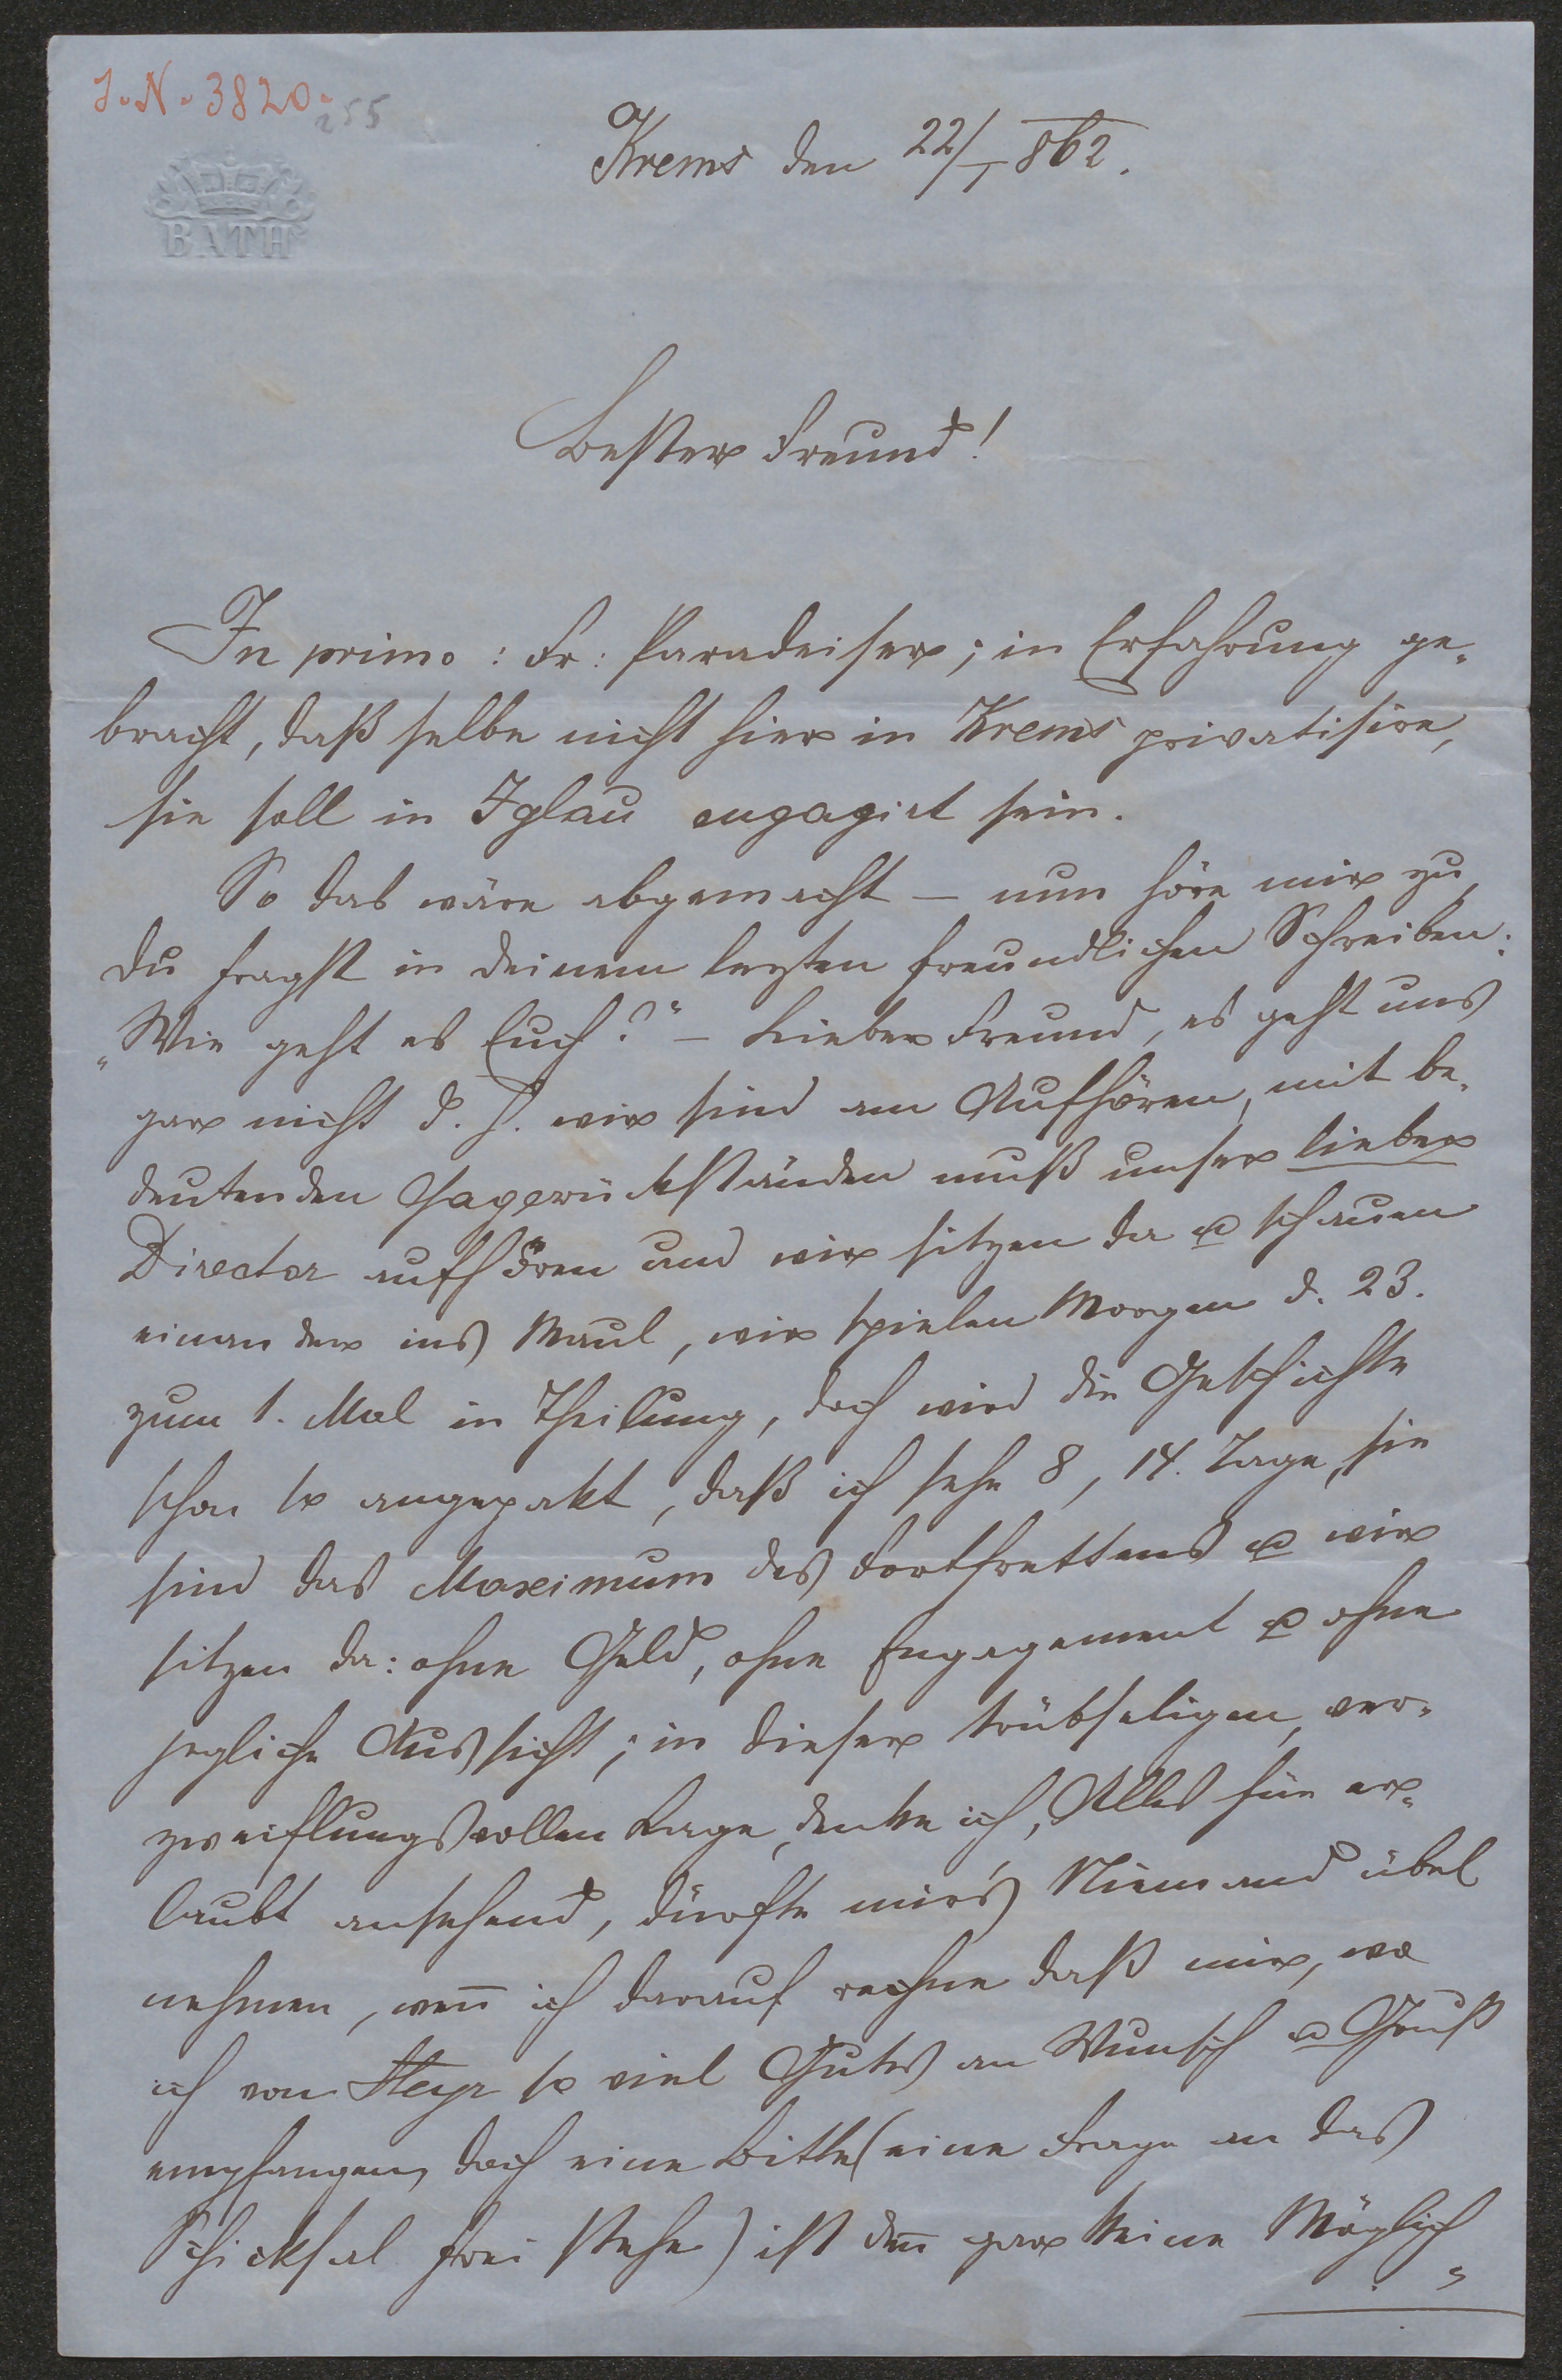 I. N. 3820.
255
BATH
Krems den 22/I 862.
Bester Freund!
In primo: Fr: Paradeiser; in Erfahrung ge-
bracht, daß selbe nicht hier in Krems privatisire,
sie soll in Iglau engagirt sein.
So das wäre abgemacht – nun höre mir zu,
du fragst in deinem lezten freundlichen Schreiben:
„Wie geht es Euch?" – Lieber Freund, es geht uns
gar nicht d. h. wir sind am Aufhören, mit be-
deutenden Gagerückständen muß unser lieber
Director aufhören und wir sitzen da u schauen
einander ins Maul, wir spielen Morgen d. 23.
zum 1. Mal in Theilung, doch wird die Geschichte
schon so angepakt, daß ich sehe 8, 14. Tage, sie
sind das Maximum des Fortfrettens u wir
sitzen da: ohne Geld, ohne Engagement u ohne
jegliche Aussicht; in dieser trübseligen, ver-
zweiflungsvollen Lage, denke ich, Alles für er-
laubt ansehend, dürfte mir's Niemand übel
nehmen, weñ ich darauf rechne daß mir, wo
ich von Steyr so viel Gutes an Wunsch u Gruß
empfangen, doch eine Bitte (eine Frage an das
Schicksal frei stehe) ist deñ gar keine Möglich-